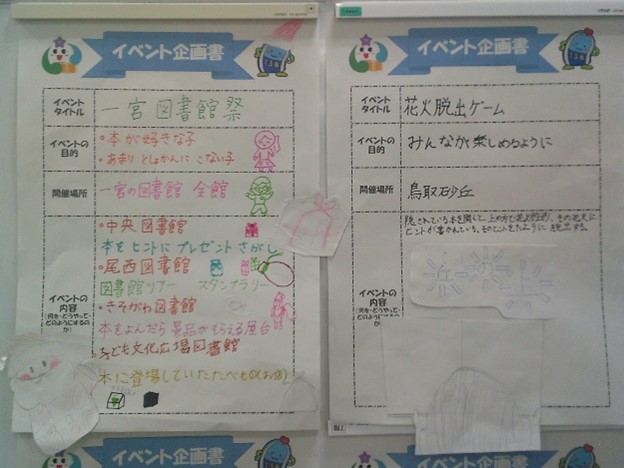 イベント企画書
イベント
タイトル
一宮図書館祭
イベントの
目的
•本が好きな子
•あまりとしょかんにこない子
開催場所
一宮の図書館 全館
イベントの
内容
(何を・どうやって・
どのようにするの
か)
•中央図書館
本をヒントにプレゼントさがし
•尾西図書館
図書館ツアー スタンプラリー
•きそがわ図書館
本をよんだら景品がもらえる屋台
•子ども文化広場図書館
本に登場していたたべもの(お店)
イベント企画書
イベント
タイトル
花火脱出ゲーム
イベントの
目的
みんなが楽しめるように
開催場所
鳥取砂丘
イベントの
内容
(何を・どうやって・
どのようにするの
か)
隠されている本を開いて、上の方で花火
ヒントが書かれている。そのヒントをたよりに 脱出する。